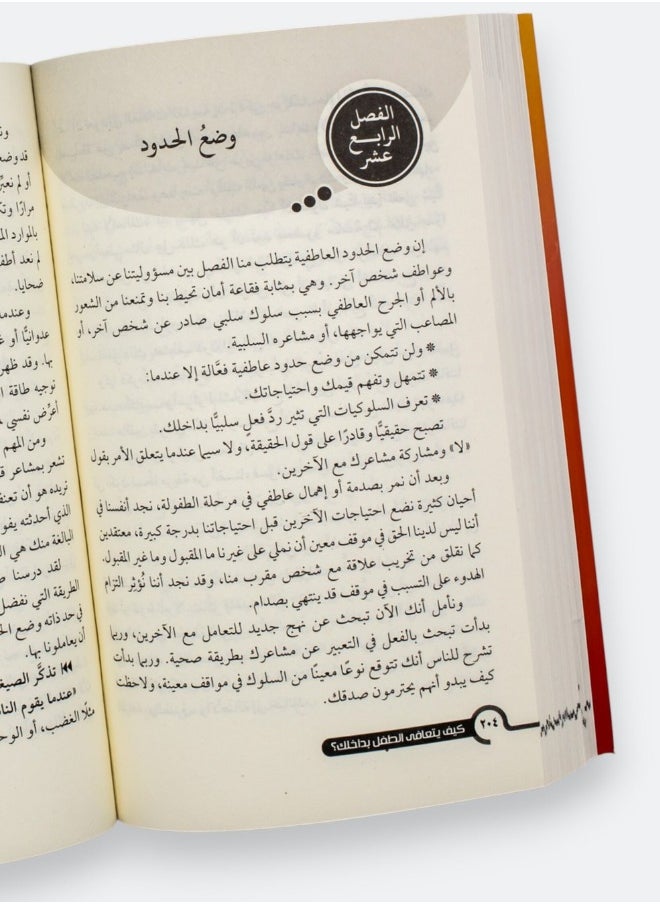 الفصل
الرابع
عشر
وضعُ الحدود
إن وضع الحدود العاطفية يتطلب منا الفصل بين مسؤوليتنا عن سلامتنا،
وعواطف شخص آخر. وهي بمثابة فقاعة أمان تحيط بنا وتمنعنا من الشعور
بالألم أو الجرح العاطفي بسبب سلوك سلبي صادر عن شخص آخر، أو
المصاعب التي يواجهها، أو مشاعره السلبية.
* ولن تتمكن من وضع حدود عاطفية فعَّالة إلا عندما:
* تتمهل وتفهم قيمك واحتياجاتك.
* تعرف السلوكيات التي تثير ردَّ فعلٍ سلبيًّا بداخلك.
تصبح حقيقيًّا وقادرًا على قول الحقيقة، ولا سيما عندما يتعلق الأمر بقول
«لا» ومشاركة مشاعرك مع الآخرين.
وبعد أن نمر بصدمة أو إهمال عاطفي في مرحلة الطفولة، نجد أنفسنا في
أحيان كثيرة نضع احتياجات الآخرين قبل احتياجاتنا بدرجة كبيرة، معتقدين
أننا ليس لدينا الحق في موقف معين أن نملي على غيرنا ما المقبول وما غير المقبول.
كما نقلق من تخريب علاقة مع شخص مقرب منا، وقد نجد أننا نُؤثِر التزام
الهدوء على التسبب في موقف قد ينتهي بصدام.
ونأمل أنك الآن تبحث عن نهج جديد للتعامل مع الآخرين، وربما
بدأت تبحث بالفعل في التعبير عن مشاعرك بطريقة صحية. وربما بدأت
تشرح للناس أنك تتوقع نوعًا معينًا من السلوك في مواقف معينة، ولاحظت
كيف يبدو أنهم يحترمون صدقك.
٢٠٤
كيف يتعافى الطفل بداخلك؟
أو لم نعبِّر
بالموارد
لم نعد
ضحايا.
وعندما
عدوانيًّا أو
بها. وقد ظهر
توجيه طاقة
أعرِّض نفسي
ومن المهم
نشعر بمشاعر
نريده هو أن
الذي أحدثته
البالغة منك هي
لقد درسنا
الطريقة التي نفضل
في حد ذاته وضع
أن يعاملونا بها.
تذكَّر
«عندما يقوم
مثلًا الغضب، أو